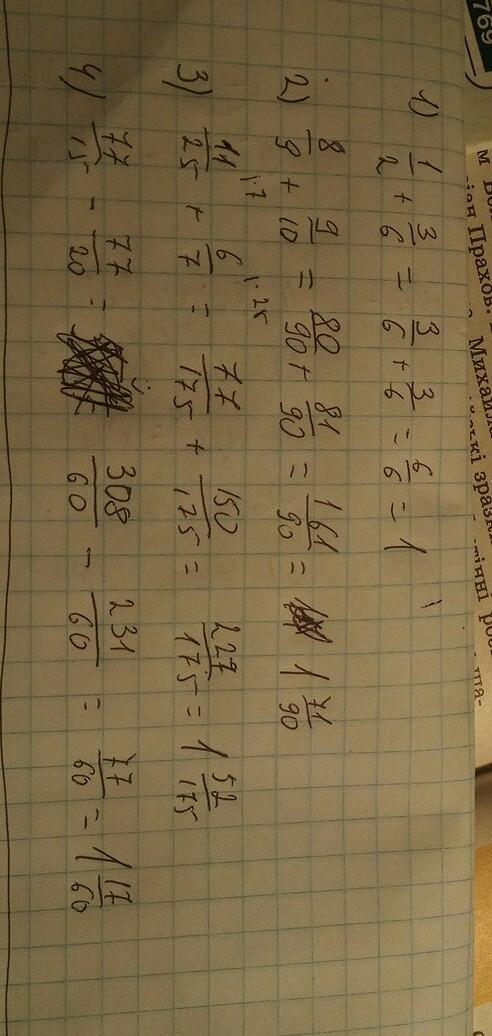 769
Прахов.
Михайл
ські зразк
1) 1/2 + 3/6 = 3/6 + 3/6 = 6/6 = 1
2) 8/9 + 9/10 = 80/90 + 81/90 = 161/90 = 1 71/90
3) 11/25 |·7 + 6/7 |·25 = 77/175 + 150/175 = 227/175 = 1 52/175
4) 77/15 - 77/20 = 308/60 - 231/60 = 77/60 = 1 17/60